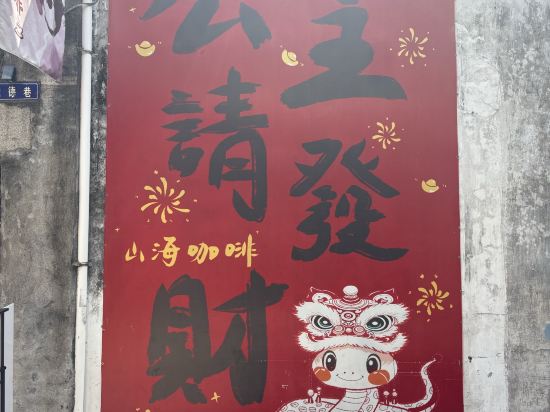 主發
公請財
山海咖啡
德巷